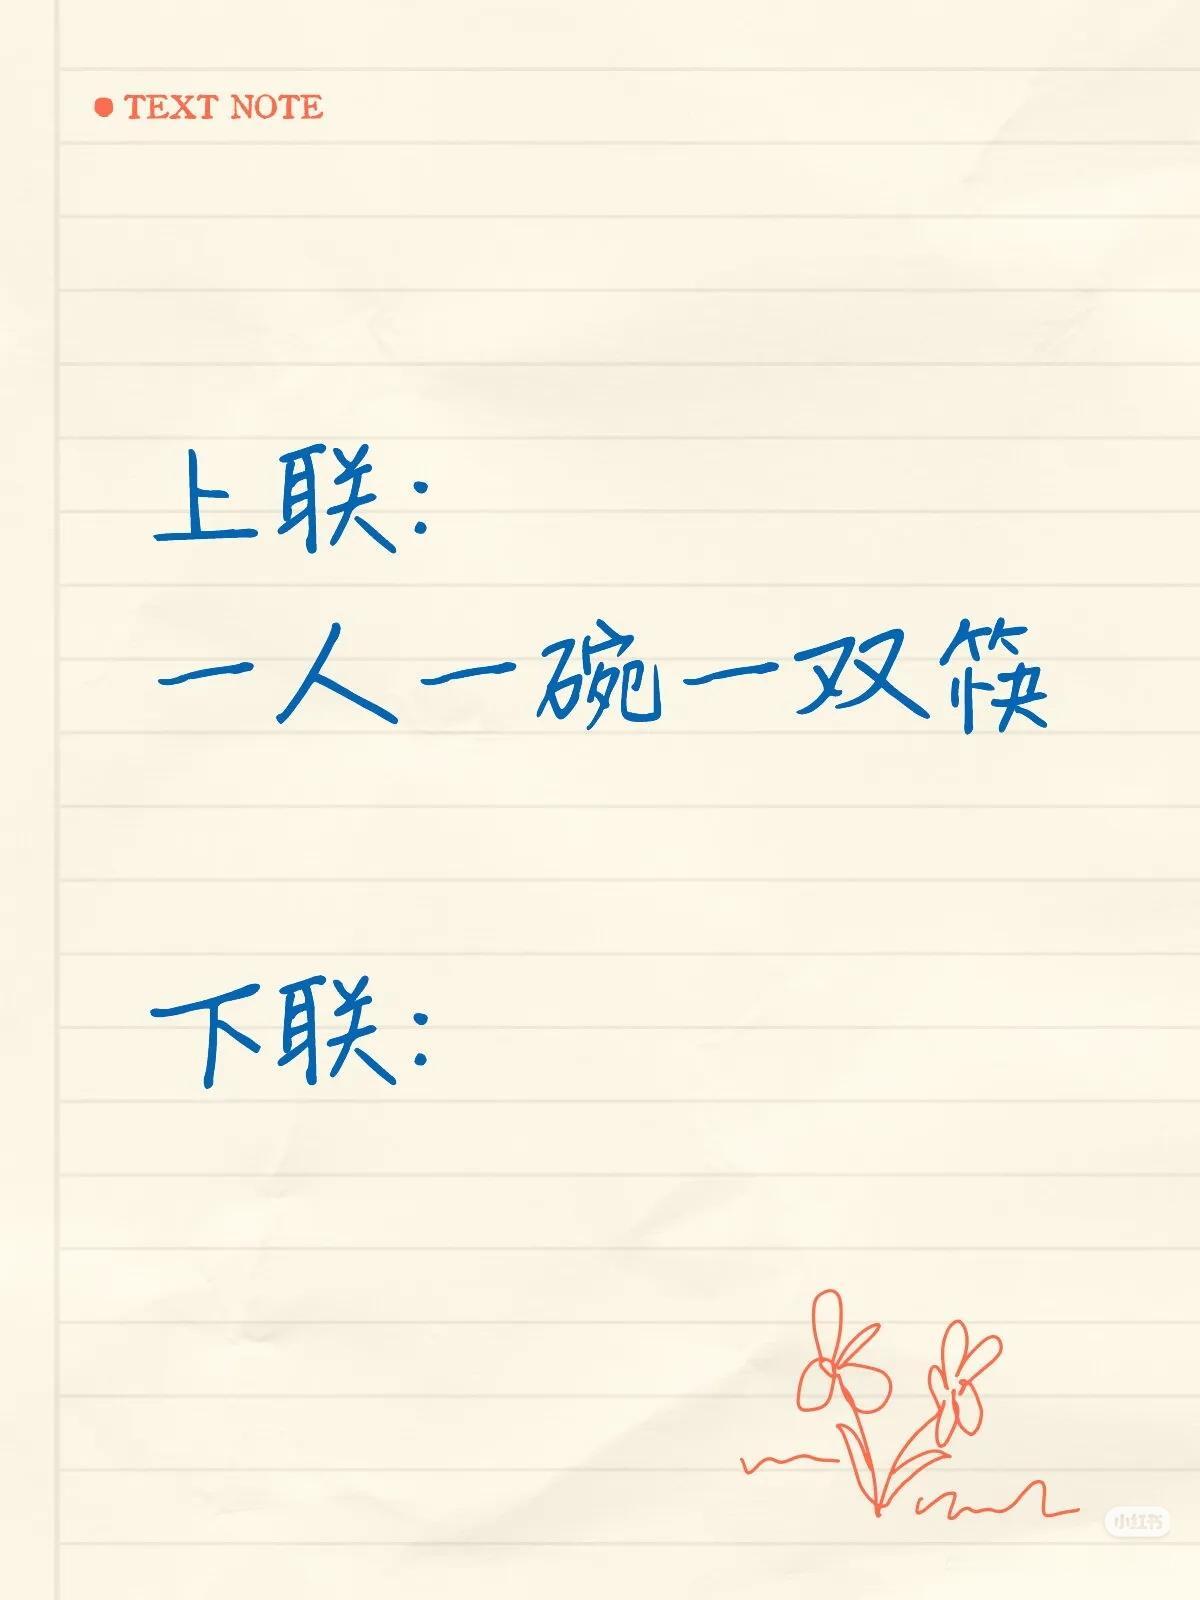 TEXT NOTE
上联：
一人一碗一双筷
下联：
小红书